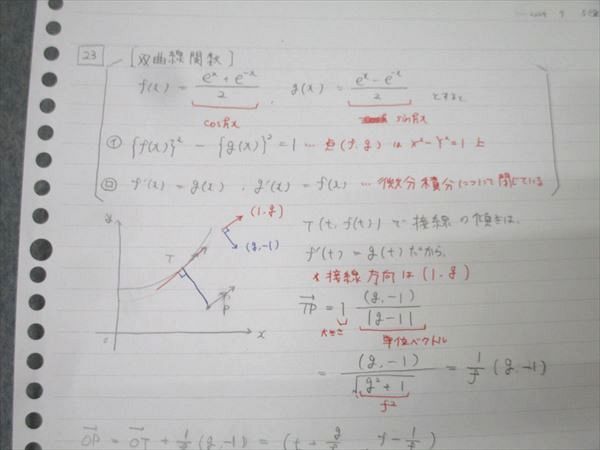 23 [双曲線関数]
f(x) = (e^x + e^-x)/2 , g(x) = (e^x - e^-x)/2 とすると
coshx sinhx
㋑ {f(x)}² - {g(x)}² = 1 … 点(f, g) は x² - y² = 1 上
㋺ f'(x) = g(x) , g'(x) = f(x) … 微分積分について閉じている
y
(1, g)
(g, -1)
T
P
x
o
T(t, f(t)) で接線の傾きは、
f'(t) = g(t) だから、
接線方向は (1, g)
→TP = 1 (g, -1)/|g - 1|
大きさ 単位ベクトル
= (g, -1)/√(g² + 1) = 1/f (g, -1)
f²
→OP = →OT + 1/f (g, -1) = (t + g/f, f - 1/f)